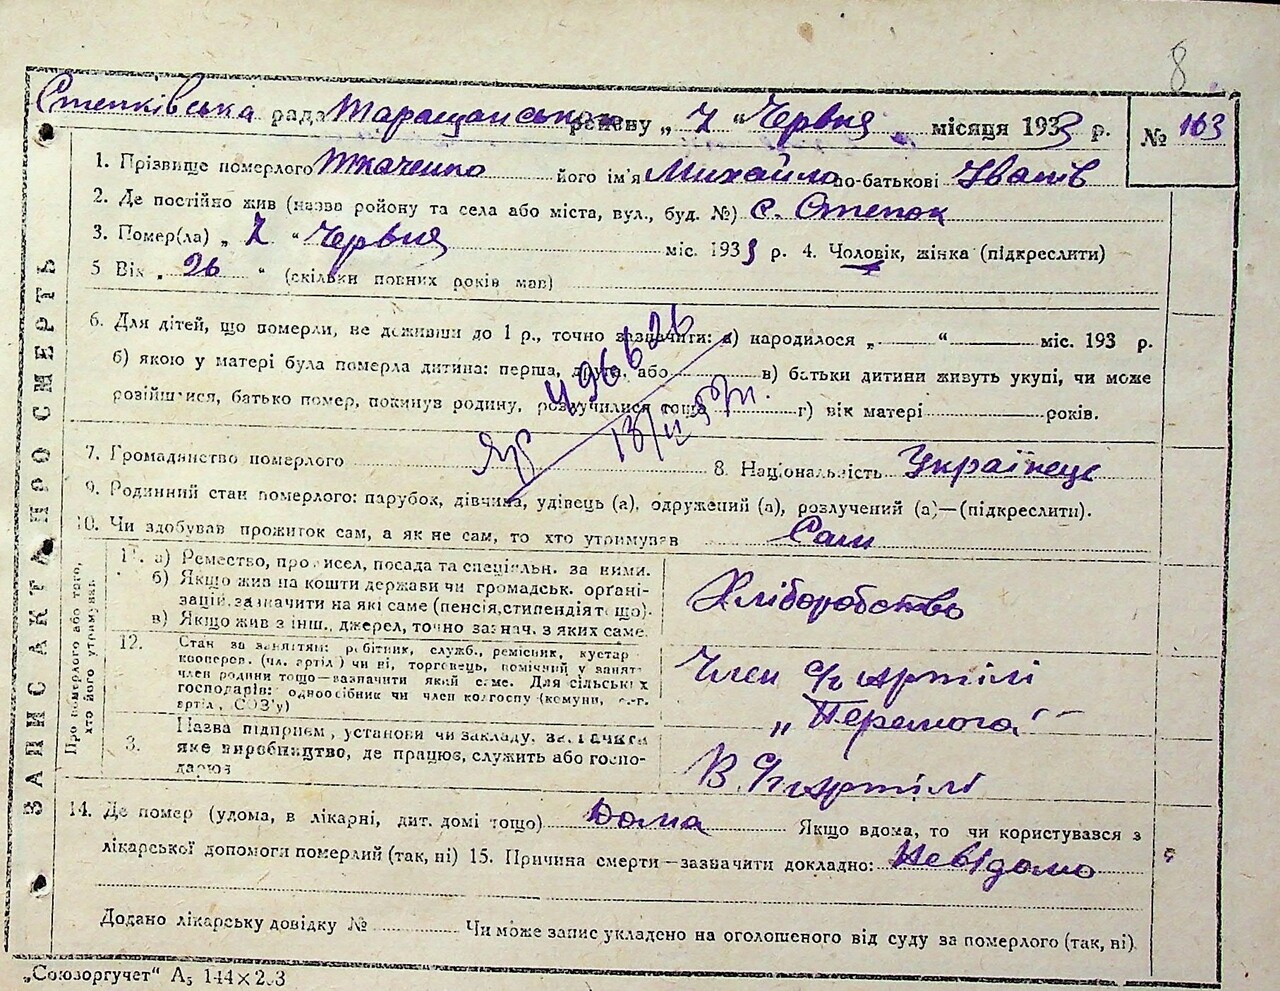 8
Степківська рада Таращанського району „ 7 “ Червня місяця 1933 р. № 163
1. Прізвище померлого Ткаченко його ім'я Михайло по-батькові Іванів
2. Де постійно жив (назва ройону та села або міста, вул., буд. №) с. Степок
3. Помер(ла) „ 7 “ Червня міс. 1933 р. 4. Чоловік, жінка (підкреслити)
5 Вік „ 26 “ (скільки повних років мав)
6. Для дітей, що померли, не доживши до 1 р., точно зазначити: а) народилося „ “ міс. 193 р.
б) якою у матері була померла дитина: перша, друга, або в) батьки дитини живуть укупі, чи може
розійшлися, батько помер, покинув родину, розлучилися тощо г) вік матері років.
7. Громадянство померлого 8. Національність Українець
9. Родинний стан померлого: парубок, дівчина, удівець (а), одружений (а), розлучений (а)—(підкреслити).
10. Чи здобував прожиток сам, а як не сам, то хто утримував Сам
ЗАПИС АКТА ПРО СМЕРТЬ
Про померлого або того, хто його утримував
11. а) Ремество, промисел, посада та спеціяльн. за ними.
б) Якщо жив на кошти держави чи громадськ. орґані-
зацій, зазначити на які саме (пенсія, стипендія тощо).
в) Якщо жив з інш., джерел, точно зазнач. з яких саме.
Хліборобство
12. Стан за заняттям: робітник, служб., ремісник, кустар
кооперов. (чл. артілі) чи ні, торговець, помічний у занят.
член родини тощо—зазначити який саме. Для сільських
господарів: одноосібник чи член колгоспу (комуни, с.-г.
артілі, СОЗ'у)
Член с/г артілі
„Перемога“
3. Назва підприєм., установи чи закладу, зазначити
яке виробництво, де працює, служить або госпо-
дарює
В с/г артілі
14. Де помер (удома, в лікарні, дит. домі тощо) Дома Якщо вдома, то чи користувався з
лікарської допомоги померлий (так, ні) 15. Причина смерти—зазначити докладно: Невідомо
Додано лікарську довідку № Чи може запис укладено на оголошеного від суду за померлого (так, ні).
„Союзоргучет“ А5 144×203